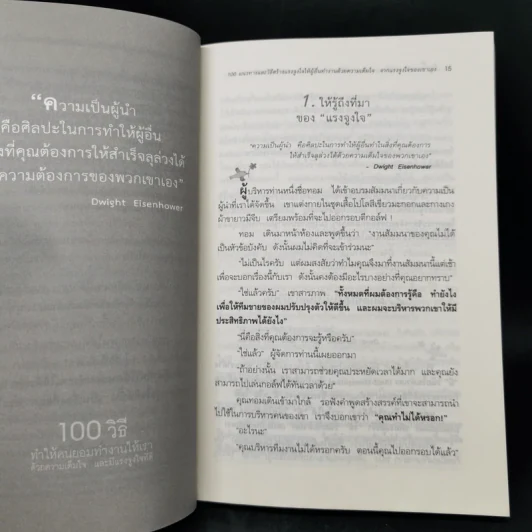 “ความเป็นผู้นำ
คือศิลปะในการทำให้ผู้อื่น
งที่คุณต้องการให้สำเร็จลุล่วงได้
ความต้องการของพวกเขาเอง”
Dwight Eisenhower
100 วิธี
ทำให้คนยอมทำงานให้เรา
ด้วยความเต็มใจ และมีแรงจูงใจที่ดี
15
1. ให้รู้ถึงที่มา
ของ “แรงจูงใจ”
“ความเป็นผู้นำ คือศิลปะในการทำให้ผู้อื่นทำในสิ่งที่คุณต้องการ
ให้สำเร็จลุล่วงได้ด้วยความเต็มใจของพวกเขาเอง”
- Dwight Eisenhower
ผู้บริหารท่านหนึ่งชื่อทอม ได้เข้าอบรมสัมมนาเกี่ยวกับความเป็น
ผู้นำที่เราได้จัดขึ้น เขาแต่งกายในชุดเสื้อโปโลสีเขียวมะกอกและกางเกง
ผ้าขายาวมีจีบ เตรียมพร้อมที่จะไปออกรอบตีกอล์ฟ !
ทอม เดินมาหน้าห้องและพูดขึ้นว่า “งานสัมมนาของคุณไม่ได้
เป็นหัวข้อบังคับ ดังนั้นผมไม่คิดที่จะเข้าร่วมนะ”
“ไม่เป็นไรครับ แต่ผมสงสัยว่าทำไมคุณจึงมาที่งานสัมมนานี้แต่เช้า
เพื่อจะบอกเรื่องนี้กับเรา ดังนั้นคงต้องมีอะไรบางอย่างที่คุณอยากทราบ”
“ใช่แล้วครับ” เขาสารภาพ “ทั้งหมดที่ผมต้องการรู้คือ ทำยังไง
เพื่อให้ทีมขายของผมปรับปรุงตัวให้ดีขึ้น และผมจะบริหารพวกเขาให้มี
ประสิทธิภาพได้ยังไง”
“นี่คือสิ่งที่คุณต้องการจะรู้หรือครับ”
“ใช่แล้ว” ผู้จัดการท่านนี้เผยออกมา
“ถ้าอย่างนั้น เราสามารถช่วยคุณประหยัดเวลาได้มาก และคุณยัง
สามารถไปเล่นกอล์ฟได้ทันเวลาด้วย”
คุณทอมเดินเข้ามาใกล้ รอฟังคำพูดสร้างสรรค์ที่เขาจะสามารถนำ
ไปใช้ในการบริหารคนของเขา เราจึงบอกเขาว่า “คุณทำไม่ได้หรอก!”
“อะไรนะ”
“คุณบริหารทีมงานไม่ได้หรอกครับ ตอนนี้คุณไปออกรอบได้แล้ว”